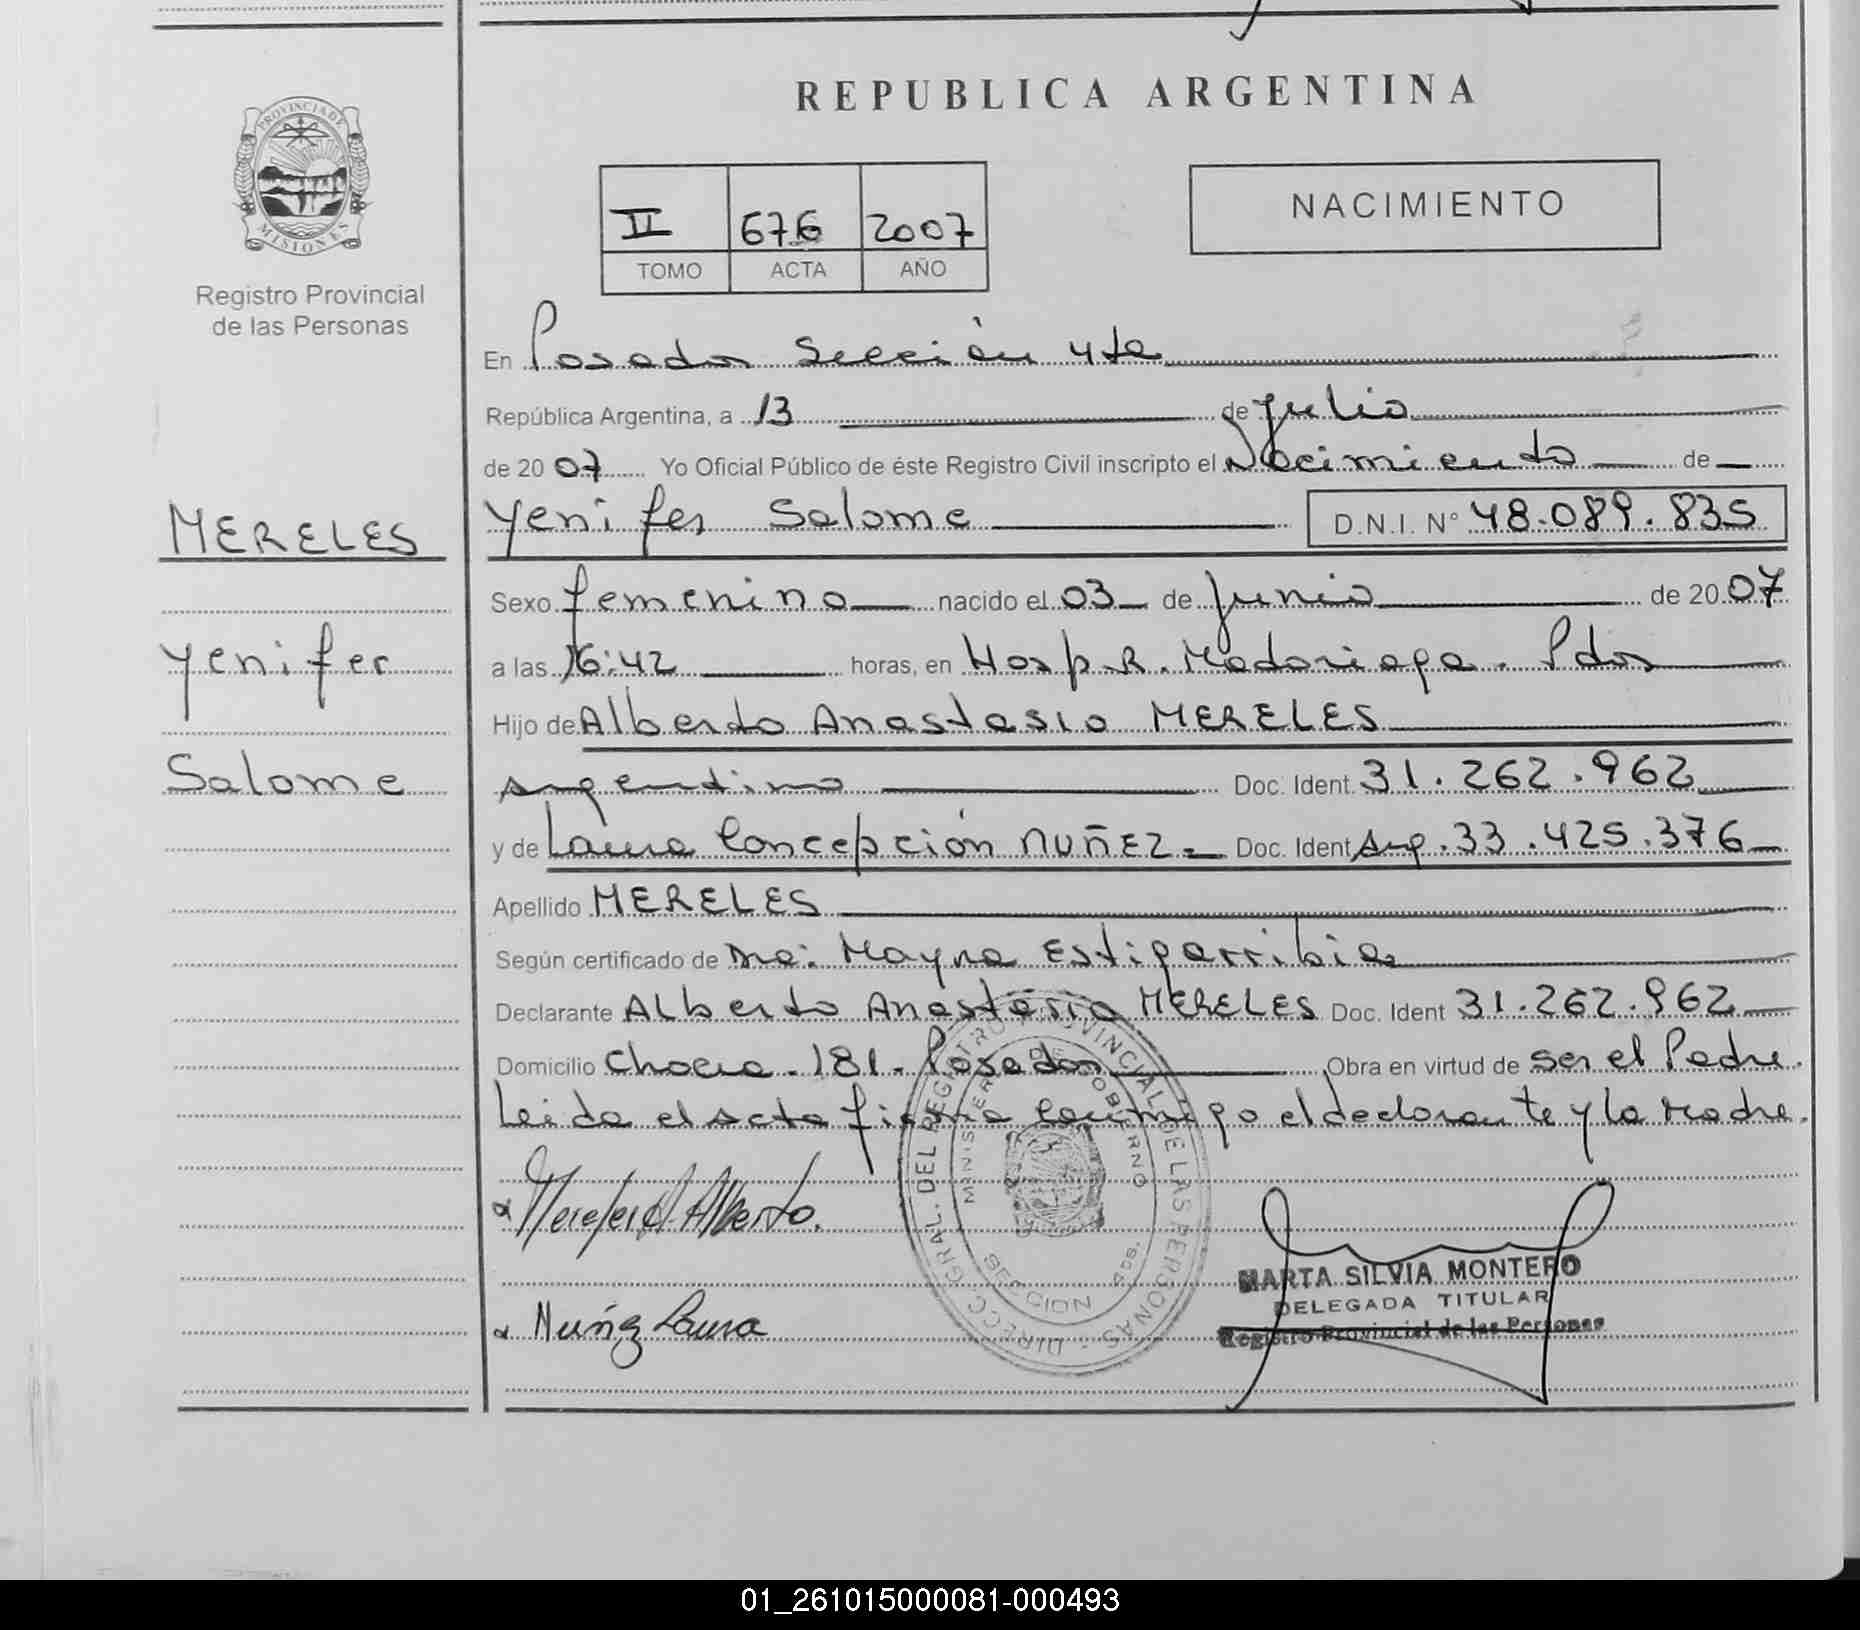 REPUBLICA ARGENTINA
PROVINCIA DE
MISIONES
Registro Provincial
de las Personas
NACIMIENTO
II 676 2007
TOMO ACTA AÑO
En Posadas Sección 4ta
República Argentina, a 13 de Julio
de 2007 Yo Oficial Público de éste Registro Civil inscripto el Nacimiento de
MERELES
Yenifer
Salome
Yenifer Salome D.N.I. N° 48.089.835
Sexo femenino nacido el 03 de Junio de 2007
a las 16:42 horas, en Hosp. R. Madariaga. Pdas
Hijo de Alberto Anastasio MERELES
argentino Doc. Ident. 31.262.962
y de Laura Concepción NUÑEZ Doc. Ident Arg. 33.425.376
Apellido MERELES
Según certificado de Mayra Estigarribia
Declarante Alberto Anastasio MERELES Doc. Ident 31.262.962
Domicilio 181. Posadas Obra en virtud de ser el Padre.
Leida el acta firma conmigo el declarante y la Madre.
Mereles A. Alberto.
Nuñez Laura
DIRECC. GRAL. DEL REGISTRO PROVINCIAL DE LAS PERSONAS
MINISTERIO DE GOBIERNO
SECCION Pdas.
MARTA SILVIA MONTERO
DELEGADA TITULAR
Registro Provincial de las Personas
01_261015000081-000493